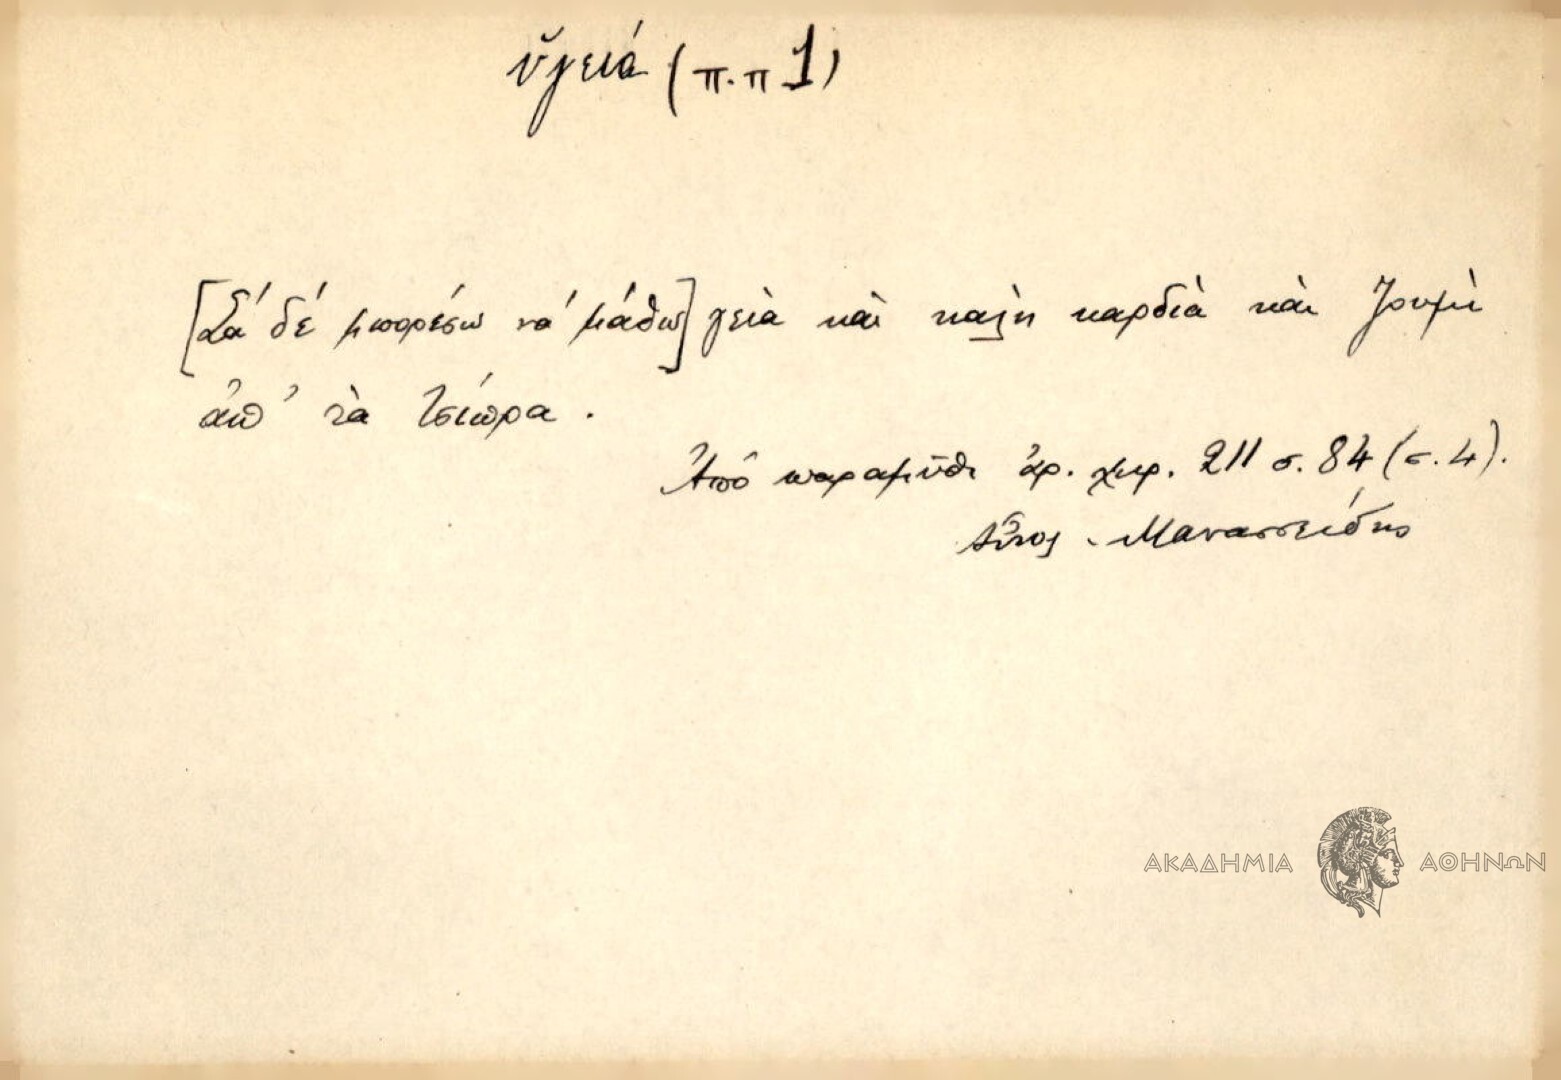 ὑγειά (π.π 1)
[Σά δέ μπορέσω νά μάθω] γειὰ καὶ καλὴ καρδιὰ καὶ ζουμὶ
ἀπ' τὰ τσίπρα.
Ἀπὸ παραμῦθι ἀρ. χειρ. 211 σ. 84 (σ. 4).
Αἶνος Μανασσείδης
ΑΚΑΔΗΜΙΑ ΑΘΗΝΩΝ